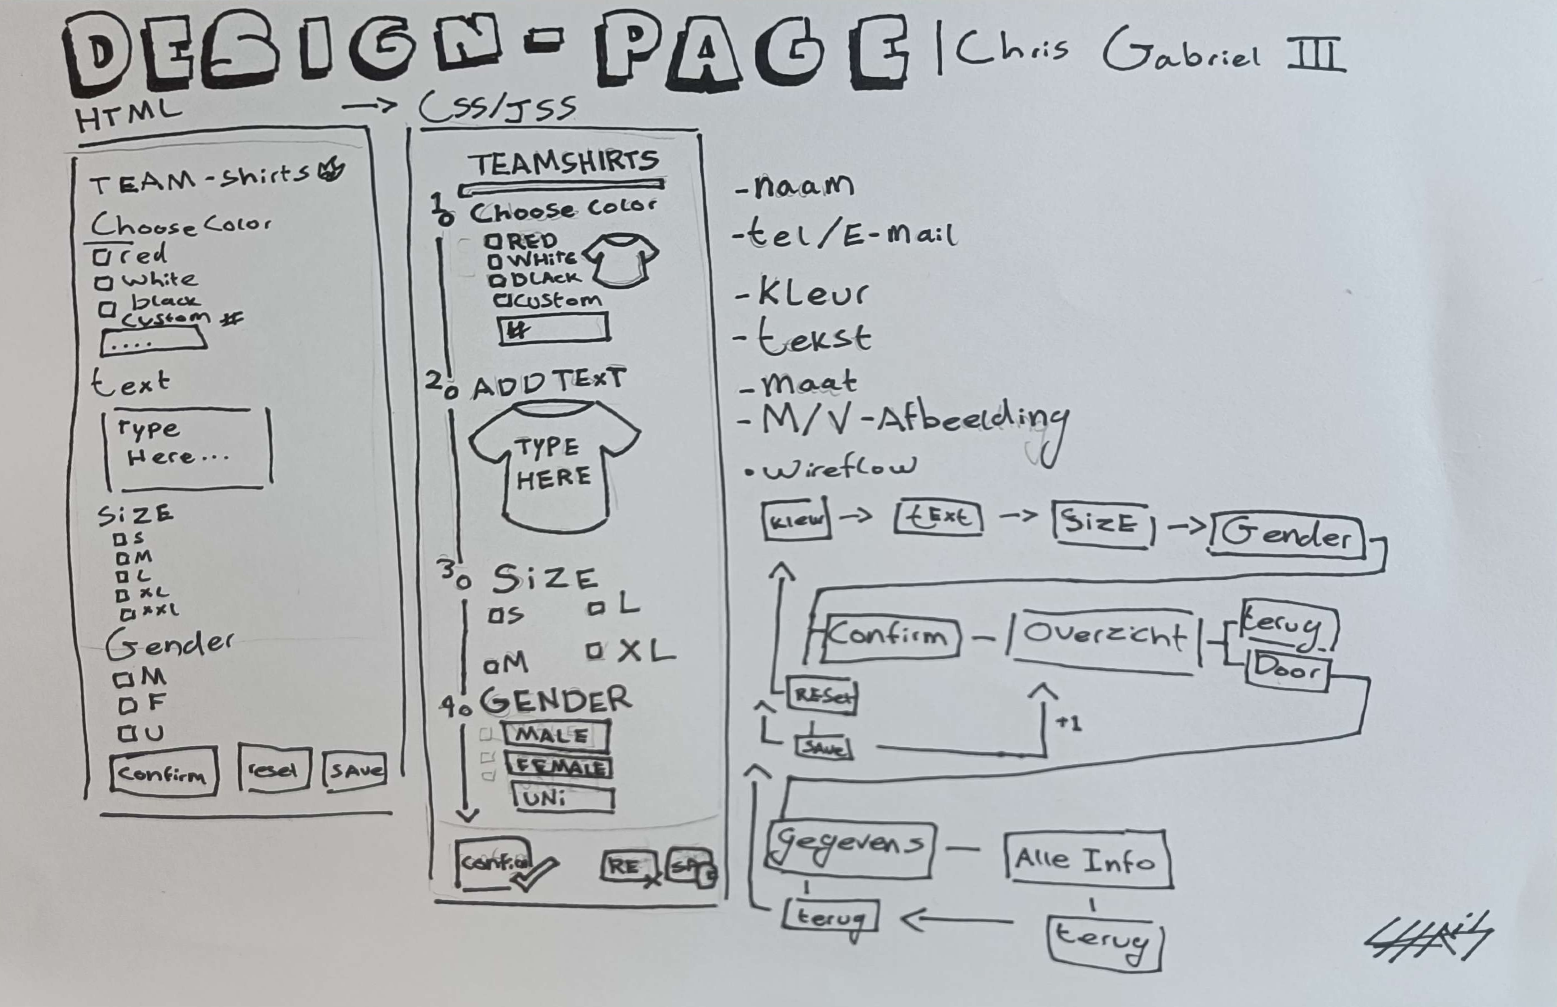 DESIGN-PAGE | Chris Gabriel III
HTML → CSS/JSS
TEAM-shirts
Choose Color
red
white
black
custom #
....
text
Type
Here...
SiZE
S
M
L
XL
XXL
Gender
M
F
U
Confirm
reset
SAve
TEAMSHIRTS
1. Choose Color
RED
WHite
BLAcK
custom
#
2. ADD TExT
TYPE
HERE
3. SiZE
S
L
M
XL
4. GENDER
MALE
FEMALE
UNi
RE
-naam
-tel/E-mail
-Kleur
-tekst
-maat
-M/V-Afbeelding
•wireflow
Kleur → tExt → SizE → Gender
Confirm - Overzicht
terug
Door
RESet
SAve
+1
gegevens - Alle Info
terug ← terug
CHRis